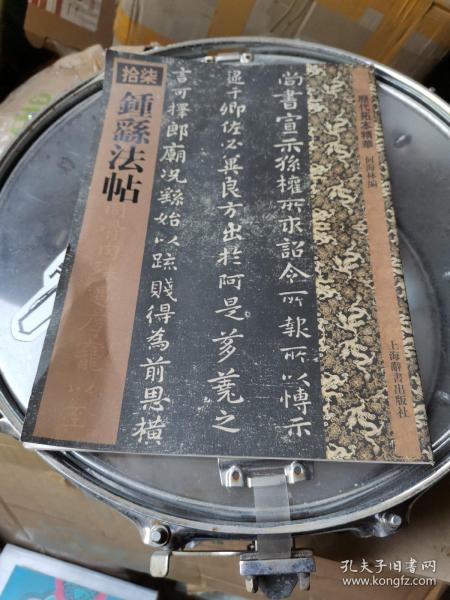 拾柒
鍾繇法帖
尚書宣示孫權所求詔令所報所以博示
逮于卿佐必冀良方出於阿是芻蕘之
言可擇郎廟況繇始以疏賤得為前恩橫
歷代拓本精華
何海林編
上海辭書出版社
孔夫子旧书网
www.kongfz.com